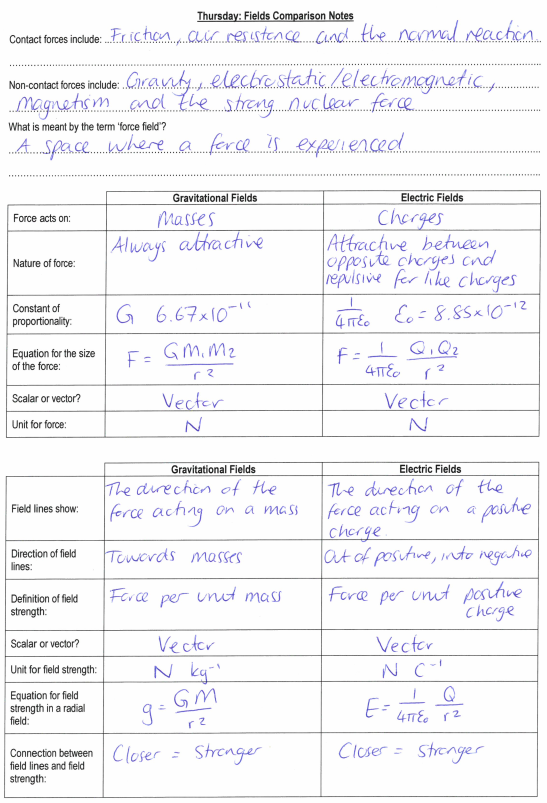 Thursday: Fields Comparison Notes
Contact forces include: Friction, air resistance and the normal reaction
Non-contact forces include: Gravity, electrostatic/electromagnetic,
magnetism and the strong nuclear force
What is meant by the term ‘force field’?
A space where a force is experienced
Gravitational Fields Electric Fields
Force acts on: Masses Charges
Nature of force: Always attractive Attractive between
opposite charges and
repulsive for like charges
Constant of
proportionality: G 6.67x10⁻¹¹ 1/4πε₀ ε₀ = 8.85x10⁻¹²
Equation for the size
of the force: F = GM₁M₂/r² F = 1/4πε₀ Q₁Q₂/r²
Scalar or vector? Vector Vector
Unit for force: N N
Gravitational Fields Electric Fields
Field lines show: The direction of the
force acting on a mass The direction of the
force acting on a positive
charge.
Direction of field
lines: Towards masses Out of positive, into negative
Definition of field
strength: Force per unit mass Force per unit positive
charge
Scalar or vector? Vector Vector
Unit for field strength: N kg⁻¹ N C⁻¹
Equation for field
strength in a radial
field: g = GM/r² E = 1/4πε₀ Q/r²
Connection between
field lines and field
strength: Closer = Stronger Closer = Stronger